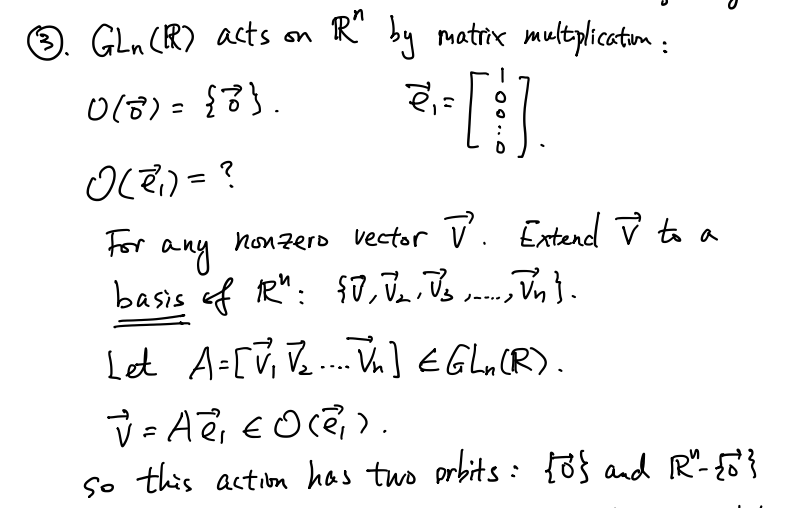 ③. GLₙ(ℝ) acts on ℝⁿ by matrix multiplication :
O(0⃗) = {0⃗}. e⃗₁ = [1 0 0 ⋮ 0].
O(e⃗₁) = ?
For any nonzero vector v⃗. Extend v⃗ to a
basis of ℝⁿ: {v⃗, v⃗₂, v⃗₃, ....., v⃗ₙ}.
Let A = [v⃗, v⃗₂ .... v⃗ₙ] ∈ GLₙ(ℝ).
v⃗ = A e⃗₁ ∈ O(e⃗₁).
So this action has two orbits : {0⃗} and ℝⁿ-{0⃗}